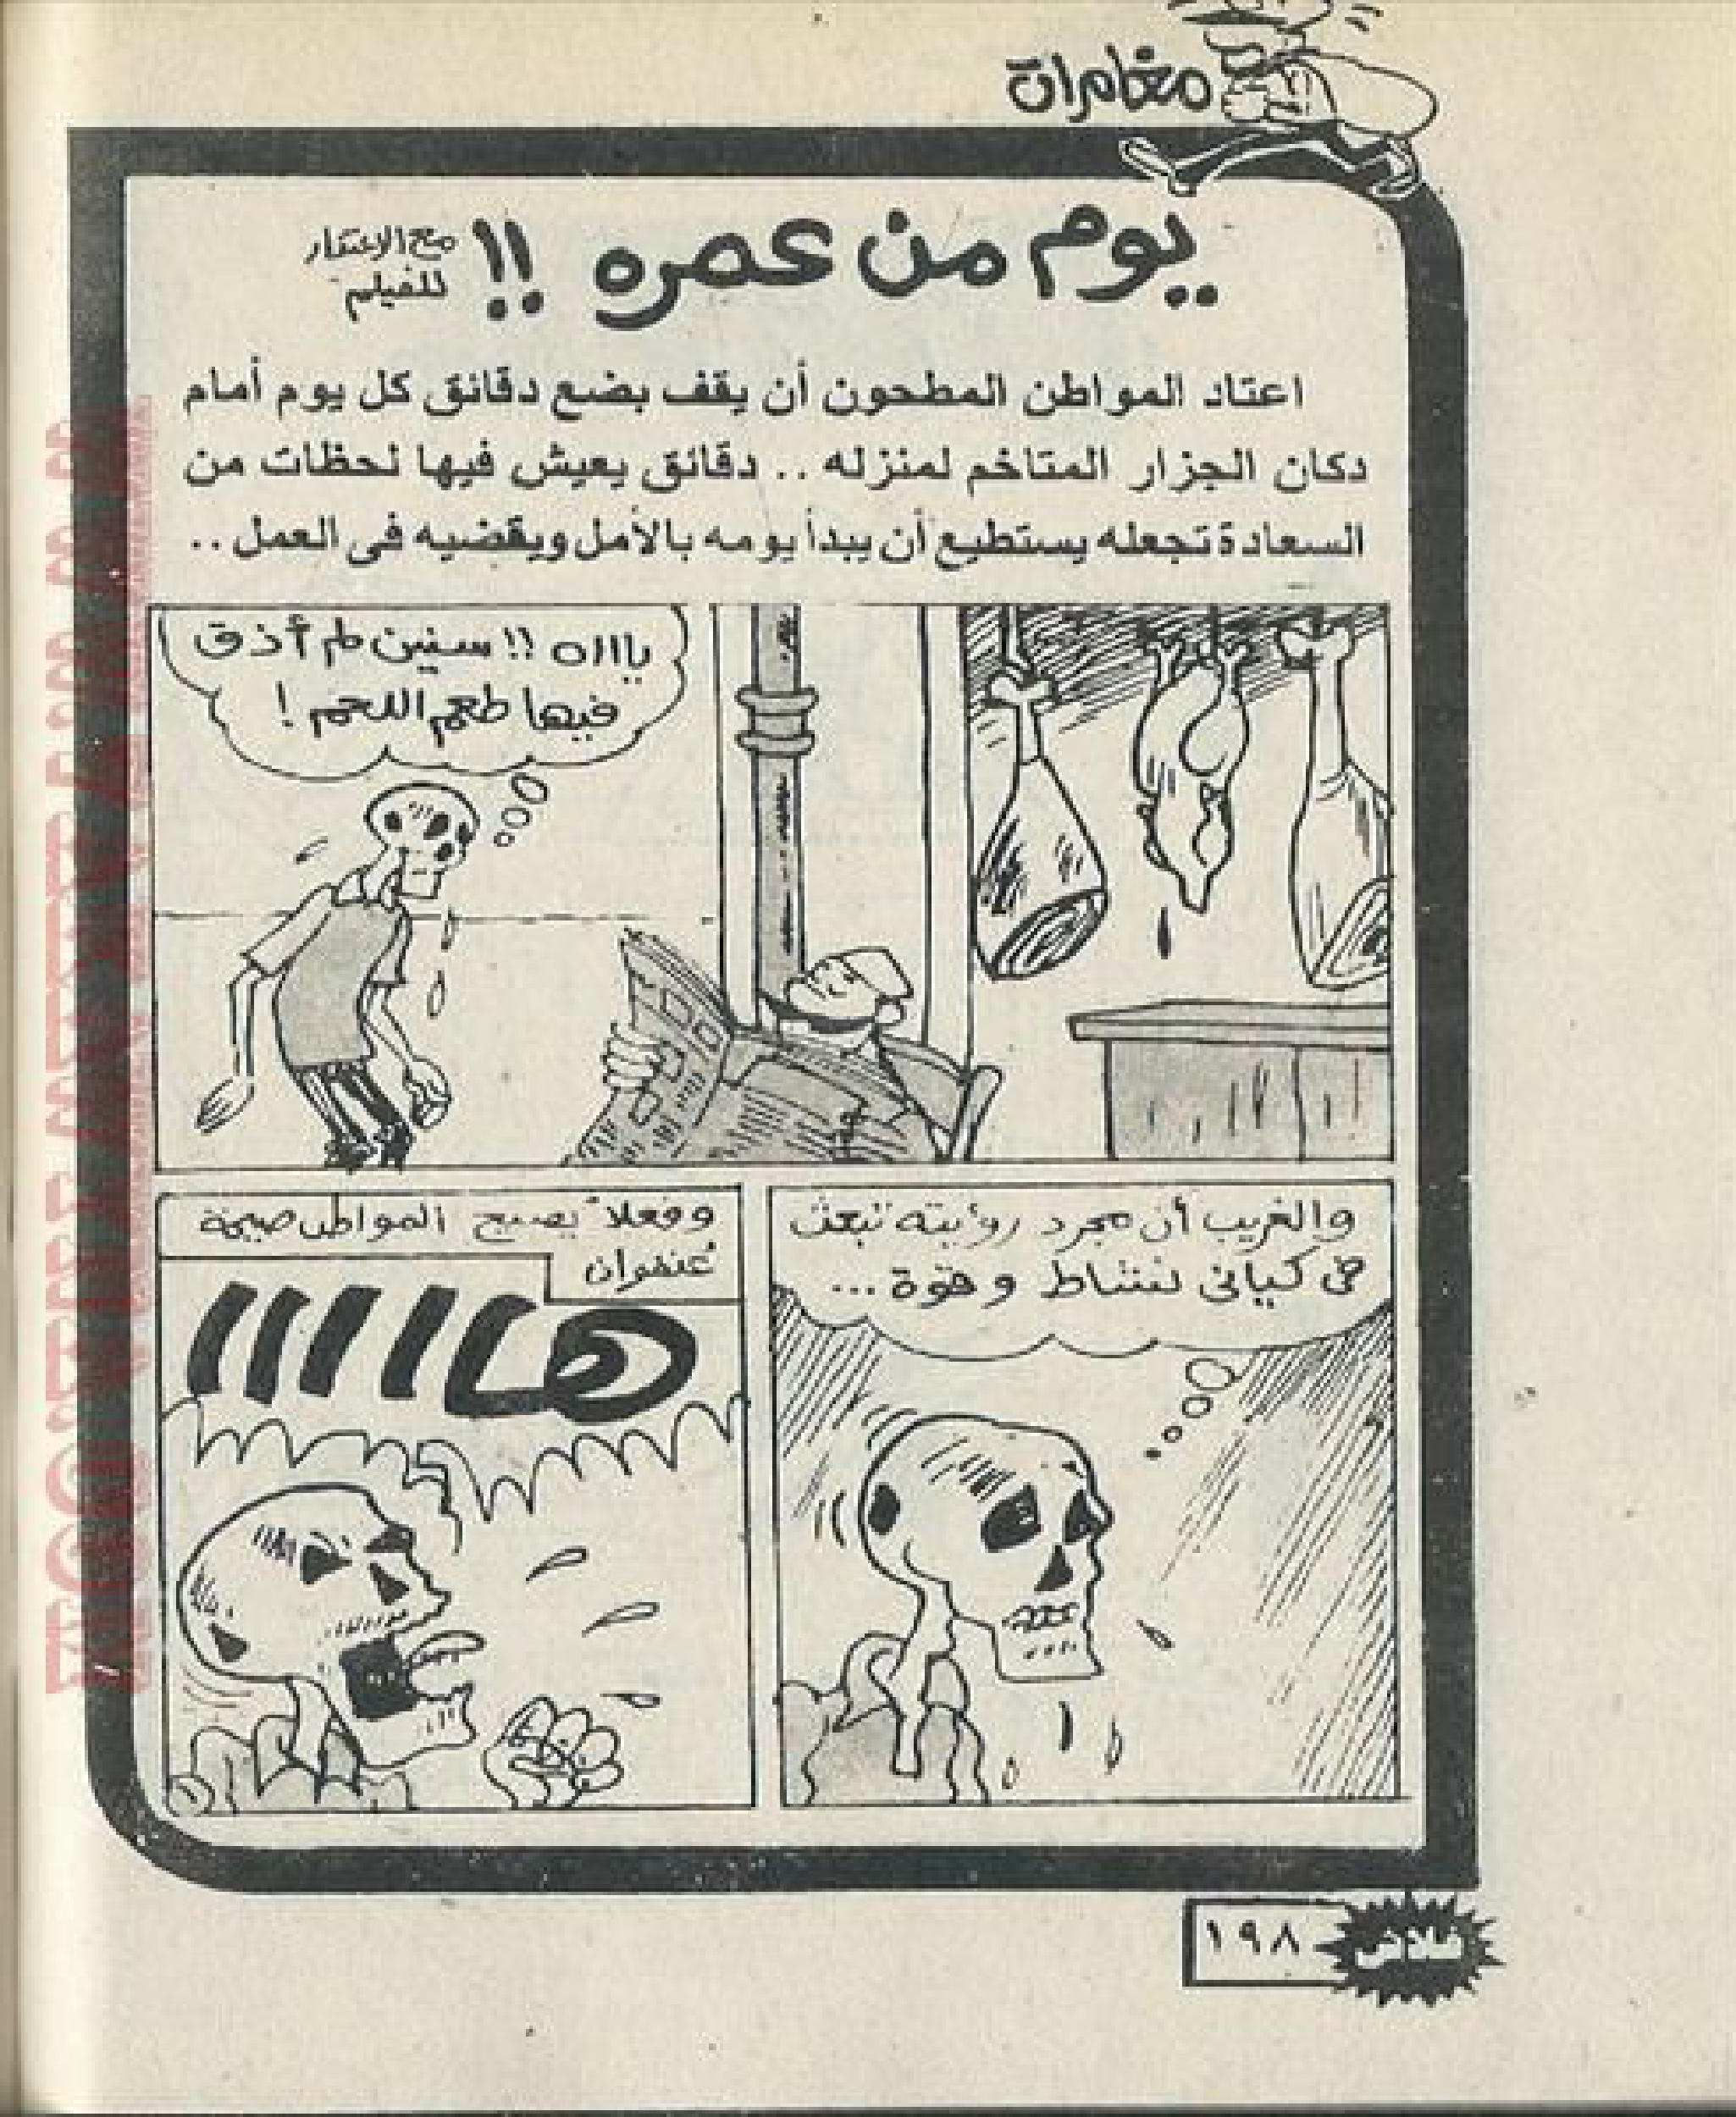 مغامرات
يوم من عمره !!
مع الاعتذار
للفيلم
اعتاد المواطن المطحون أن يقف بضع دقائق كل يوم أمام
دكان الجزار المتاخم لمنزله .. دقائق يعيش فيها لحظات من
السعادة تجعله يستطيع أن يبدأ يومه بالأمل ويقضيه فى العمل ..
ياااه !! سنين لم أذق
فيها طعم اللحم !
والغريب أن مجرد رؤيته تبعث
فى كيانى نشاط وقوة ...
وفعلاً يصيح المواطن صيحة
عنفوان
هااااا
١٩٨